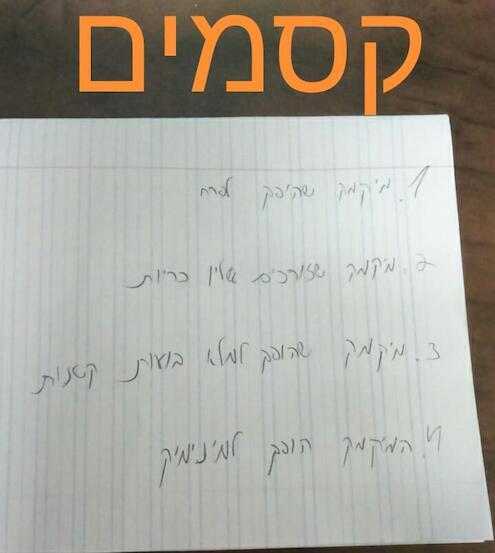 קסמים
1. מיקמק שהיפך לפרח
2. מיקמק שזורכים אליו כריות
3. מיקמק שהופך למלא בועות קטנות
4. המיקמק הופך למינימיק